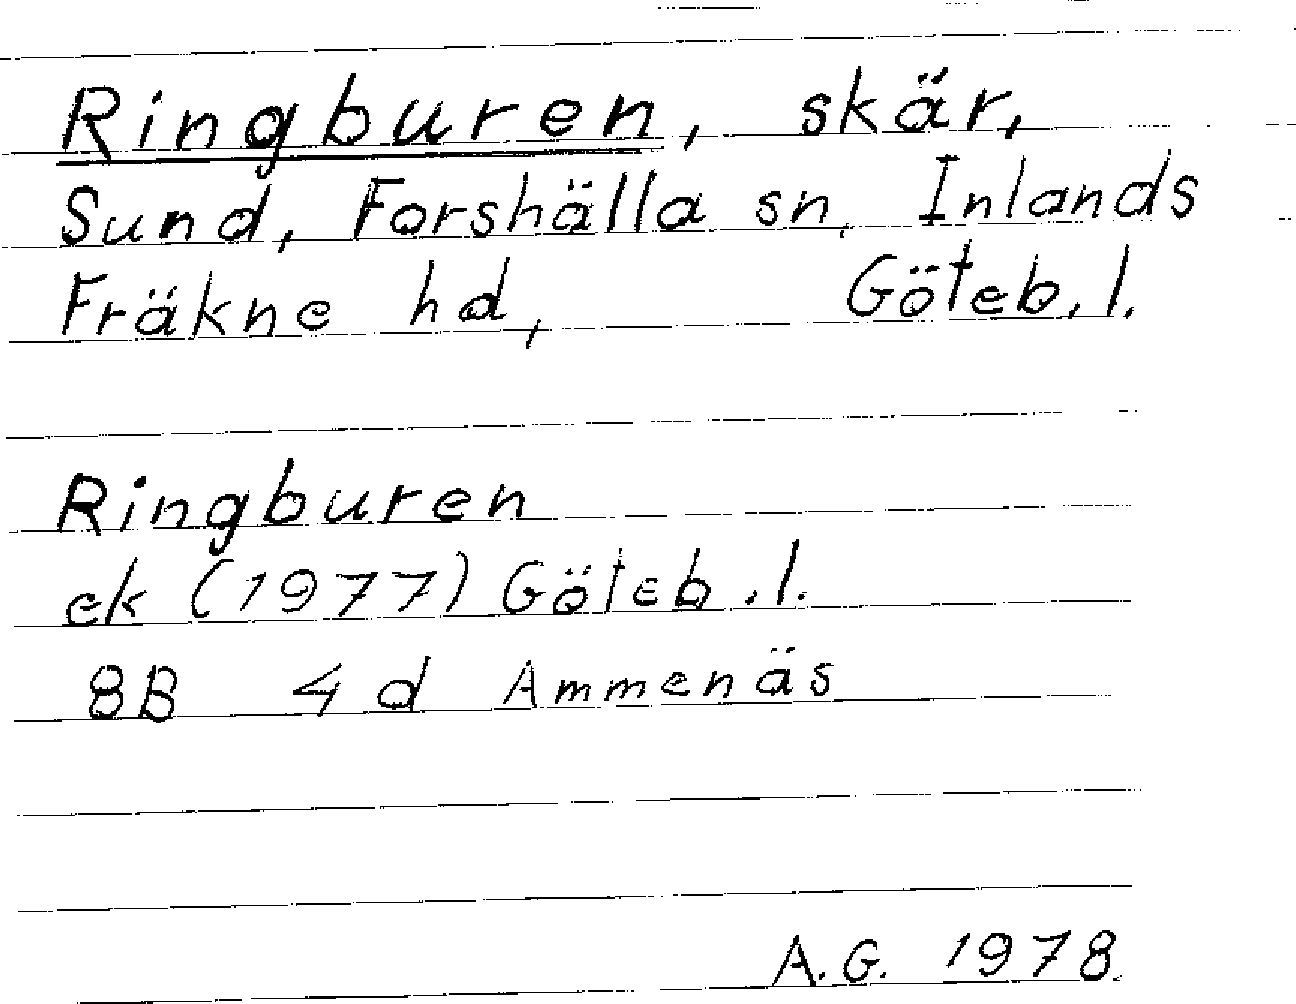 Ringburen, skär,
Sund, Forshälla sn, Inlands
Fräkne hd, Göteb. l.
Ringburen
ek (1977) Göteb. l.
8B 4d Ammenäs
A.G. 1978.